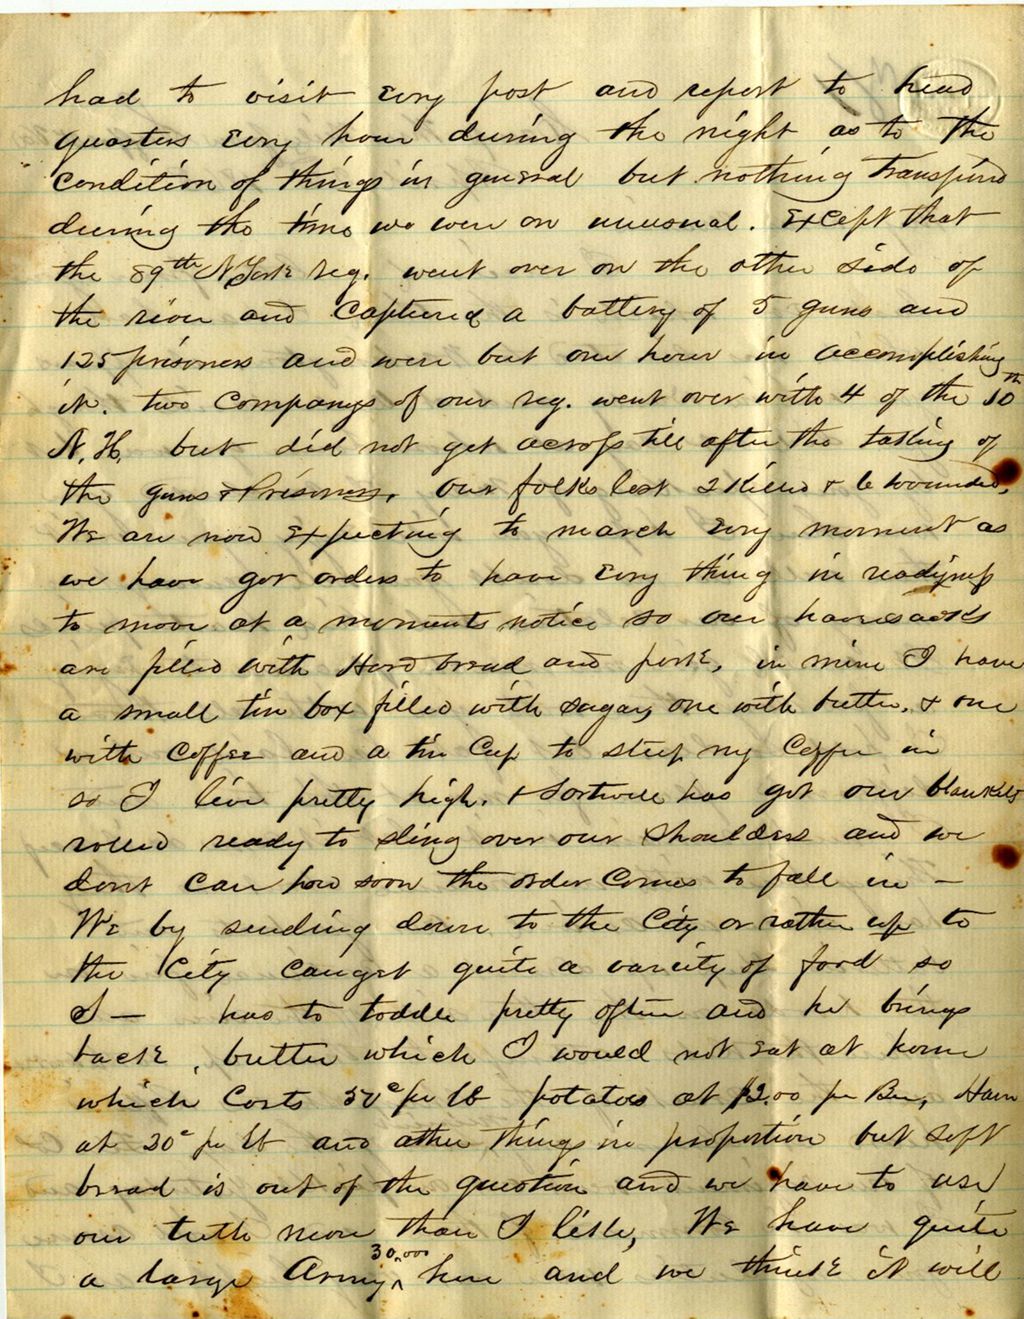 had to visit evry post and report to head
quarters evry hour during the night as to the
condition of things in general but nothing transpired
during the time we were on unusual. Except that
the 89th N York reg. went over on the other side of
the river and captured a battery of 5 guns and
125 prisoners and were but one hour in accomplishing
it. two companys of our reg. went over with 4 of the 10th
N. H. but did not get across till after the taking of
the guns & Prisoners. Our folks lost 2 killed & 6 wounded.
We are now expecting to march evry moment as
we have got orders to have evry thing in readyness
to move at a moments notice so our haversacks
are filled with Hard bread and pork, in mine I have
a small tin box filled with sugar, one with butter, & one
with Coffee and a tin Cup to steep my Coffee in
so I live pretty high. & has got our blankets
rolled ready to sling over our shoulders and we
dont care how soon the order comes to fall in —
We by sending down to the City or rather up to
the City can get quite a variety of food so
S — has to toddle pretty often and he brings
back, butter which I would not eat at home
which costs 50c per lb potatoes at $2.00 per Bu, Ham
at 20c per lb and other things in proportion but soft
bread is out of the question and we have to use
our teeth more than I like, We have quite
a large Army ^ 30,000 here and we think it will